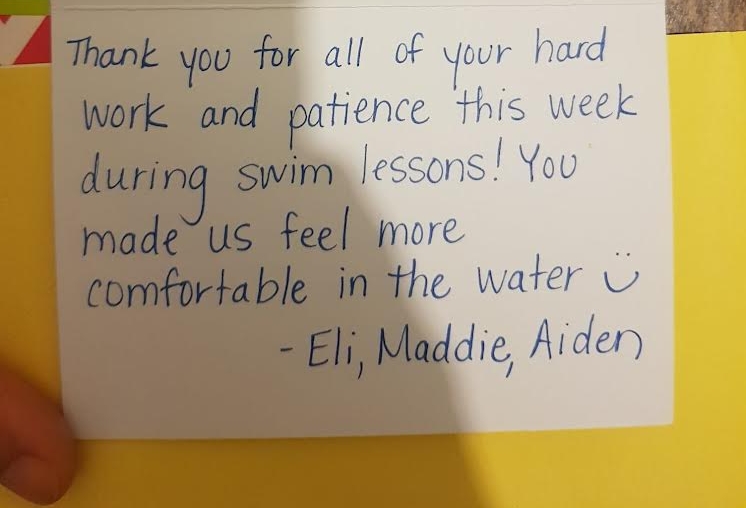 Thank you for all of your hard
work and patience this week
during swim lessons! You
made us feel more
comfortable in the water ü
- Eli, Maddie, Aiden